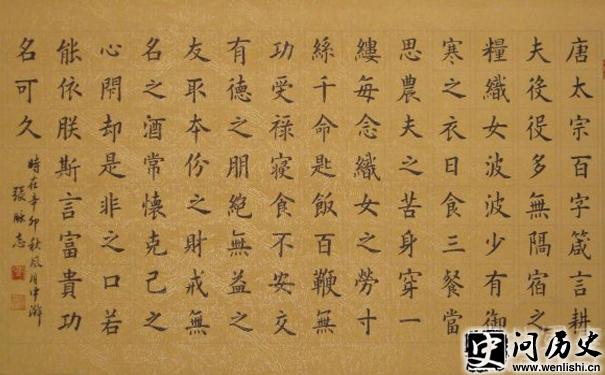 唐太宗百字箴言耕
夫後役多無隔宿之
糧織女波波少有御
寒之衣日食三餐當
思農夫之苦身穿一
縷每念織女之勞寸
絲千命匙飯百鞭無
功受祿寝食不安交
有德之朋絕無益之
友取本份之財戒無
名之酒常懷克己之
心閑却是非之口若
能依朕斯言富貴功
名可久
時在辛卯秋月中澣
張志
问历史
www.wenlishi.cn